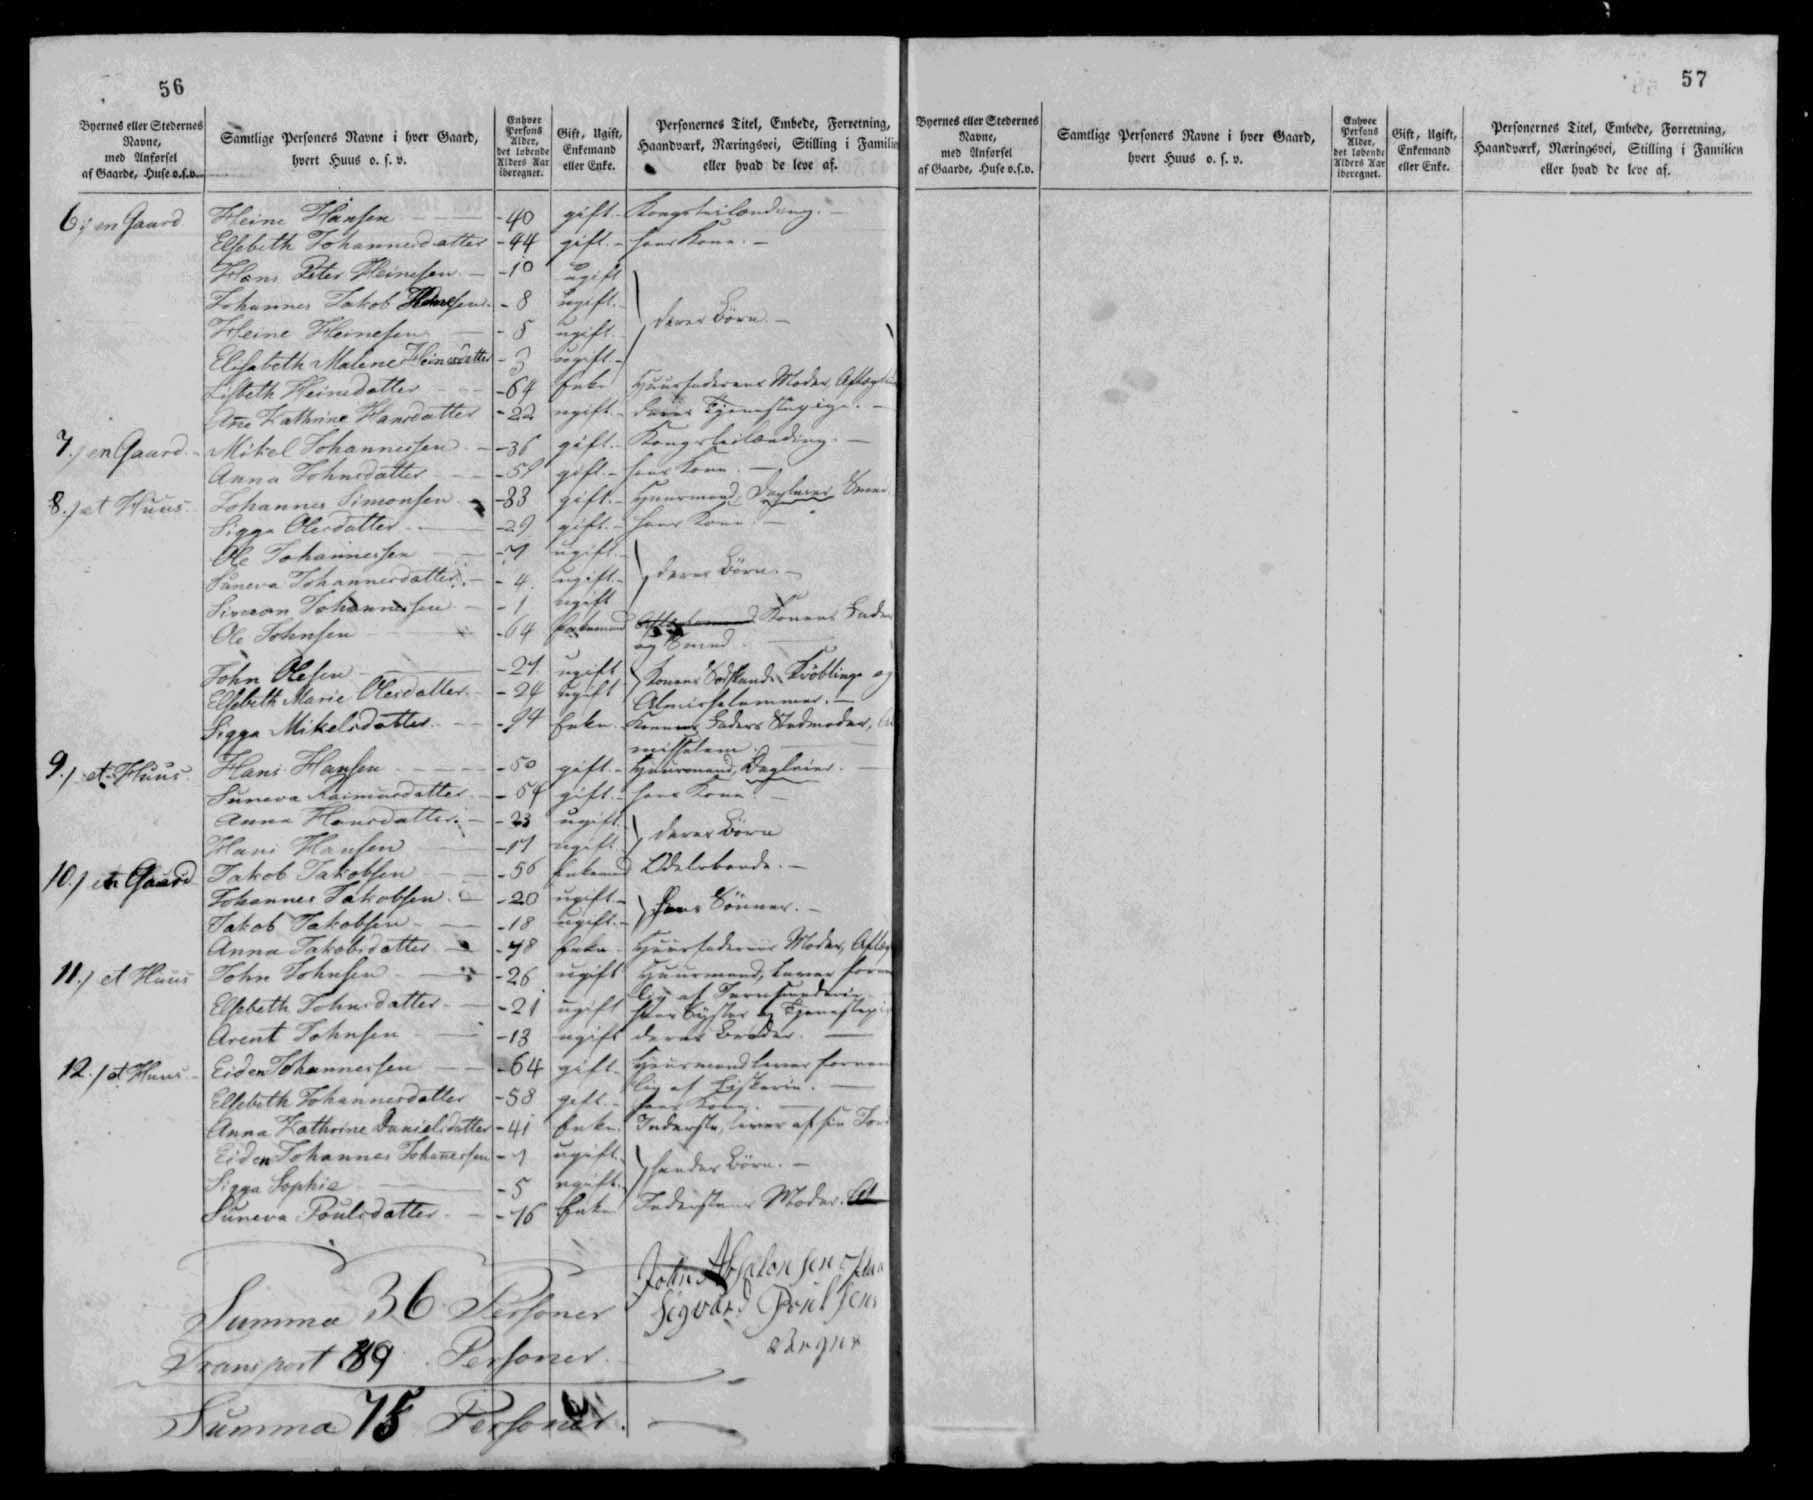 56
Byernes eller Stedernes Navne, med Anførsel af Gaarde, Huse o.s.v.
Samtlige Personers Navne i hver Gaard, hvert Huus o. s. v.
Enhver Persons Alder, det løbende Alders Aar iberegnet.
Gift, Ugift, Enkemand eller Enke.
Personernes Titel, Embede, Forretning, Haandværk, Næringsvei, Stilling i Familien eller hvad de leve af.
6.) en Gaard Heine Hansen - 40 gift. - Kongsleilænding. -
Elsebeth Johannesdatter - 44 gift. - hans Kone. -
Hans Peter Heinesen - 10 ugift
Johannes Jakob Heinesen. - 8 ugift. -
Heine Heinesen - 5 ugift deres Børn. -
Elisabeth Malene Heinesdatter - 3 ugift. -
Lisbeth Heinesdatter - 64 Enke Huusfaderens Moder,
Ane Kathrine Hansdatter - 22 ugift. - deres Tjenestepige. -
7.) en Gaard. - Mikel Johannessen. - 36 gift. - Kongsleilænding. -
Anna Johnsdatter - gift. - hans Kone. -
8.) et Huus. Johannes Simonsen. - 33 gift. - Huusmand, Dagleier
Sigga Olesdatter - 29 gift. - hans Kone. -
Ole Johannessen - 7 ugift. -
Suneva Johannesdatter. - 4. ugift. - deres Børn. -
Simon Johannessen - 1 ugift
Ole Johnsen - 64 Enkemand Konens Fader
og Smed.
John Olesen - 27 ugift Konens Sødskende Krøblinge og
Elsebeth Marie Olesdatter. - 24 ugift Almisselemmer. -
Sigga Mikelsdatter. - Enke. Konens Faders Stedmoder,
misselem.
9.) et Huus. Hans Hansen - 50 gift. - Huusmand, Dagleier.
Suneva Raimusdatter. - 54 gift. - hans Kone. -
Anna Hansdatter. - 23 ugift.
Hans Hansen - 17 ugift. deres Børn
10.) en Gaard Jakob Jakobsen - 56 Enkemand Odelsbonde. -
Johannes Jakobsen. - 20 ugift. -
Jakob Jakobsen - 18 ugift. - hans Sønner. -
Anna Jakobsdatter - 78 Enke. Huusfaderens Moder,
11.) et Huus John Johnsen - 26 ugift Huusmand, lever
lig af
Elsebeth Johnsdatter. - 21 ugift hans Syster og
Arent Johnsen - 13 ugift deres Broder. -
12.) et Huus. - Eiden Johannessen - 64 gift. Huusmand lever
lig af Fiskerie. -
Elsebeth Johannesdatter - 58 gift. - hans Kone. -
Anna Kathrine Danielsdatter - 41 Enke. Inderste, lever af sin Jord
Eiden Johannes Johannessen - 7 ugift.
Sigga Sophie - 5 ugift. hendes Børn. -
Suneva Poulsdatter. - 76 Enke Inderstens Moder.
Summa 36 Personer
Transport 39 Personer.
Summa 75 Personer.
John Absalonsen
Sigvard Poulsen
57
Byernes eller Stedernes Navne, med Anførsel af Gaarde, Huse o.s.v.
Samtlige Personers Navne i hver Gaard, hvert Huus o. s. v.
Enhver Persons Alder, det løbende Alders Aar iberegnet.
Gift, Ugift, Enkemand eller Enke.
Personernes Titel, Embede, Forretning, Haandværk, Næringsvei, Stilling i Familien eller hvad de leve af.